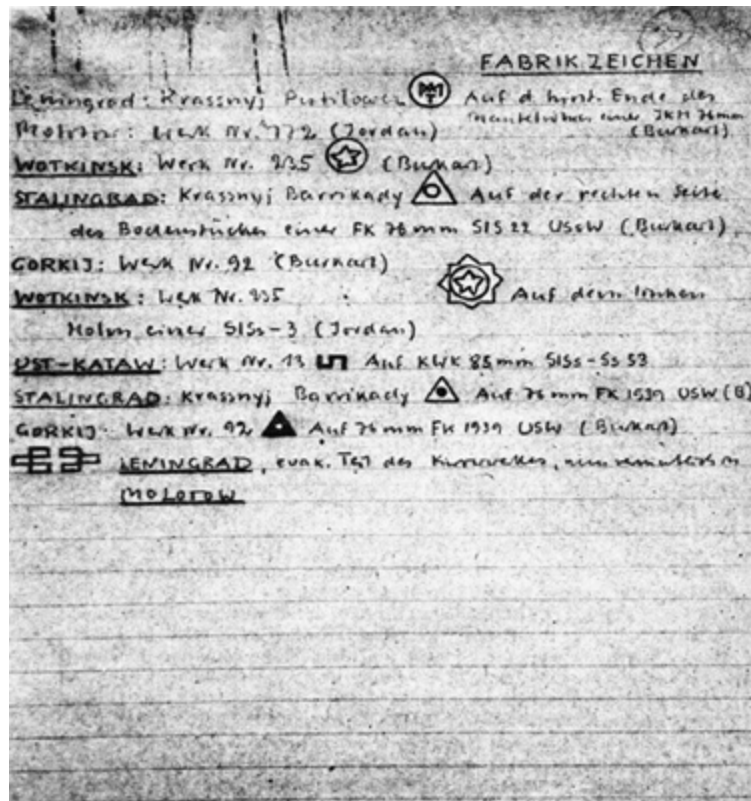 FABRIKZEICHEN
Leningrad: Krassnyj Putilowez Auf d. hint. Ende des
Mantelrohres einer IKH 76mm
Molotow: Werk Nr. 172 (Jordan) (Burkart)
WOTKINSK: Werk Nr. 235 (Burkart)
STALINGRAD: Krassnyj Barrikady Auf der rechten Seite
des Bodenstückes einer FK 76 mm SIS 22 USW (Burkart)
GORKIJ: Werk Nr. 92 (Burkart)
WOTKINSK: Werk Nr. 235 Auf dem linken
Holm einer SISs-3 (Jordan)
UST-KATAW: Werk Nr. 13 Auf KWK 85mm SISs-Ss 53
STALINGRAD: Krassnyj Barrikady Auf 76 mm FK 1939 USW (B)
GORKIJ: Werk Nr. 92 Auf 76 mm FK 1939 USW (Burkart)
LENINGRAD, evak. Teil des
MOLOTOW